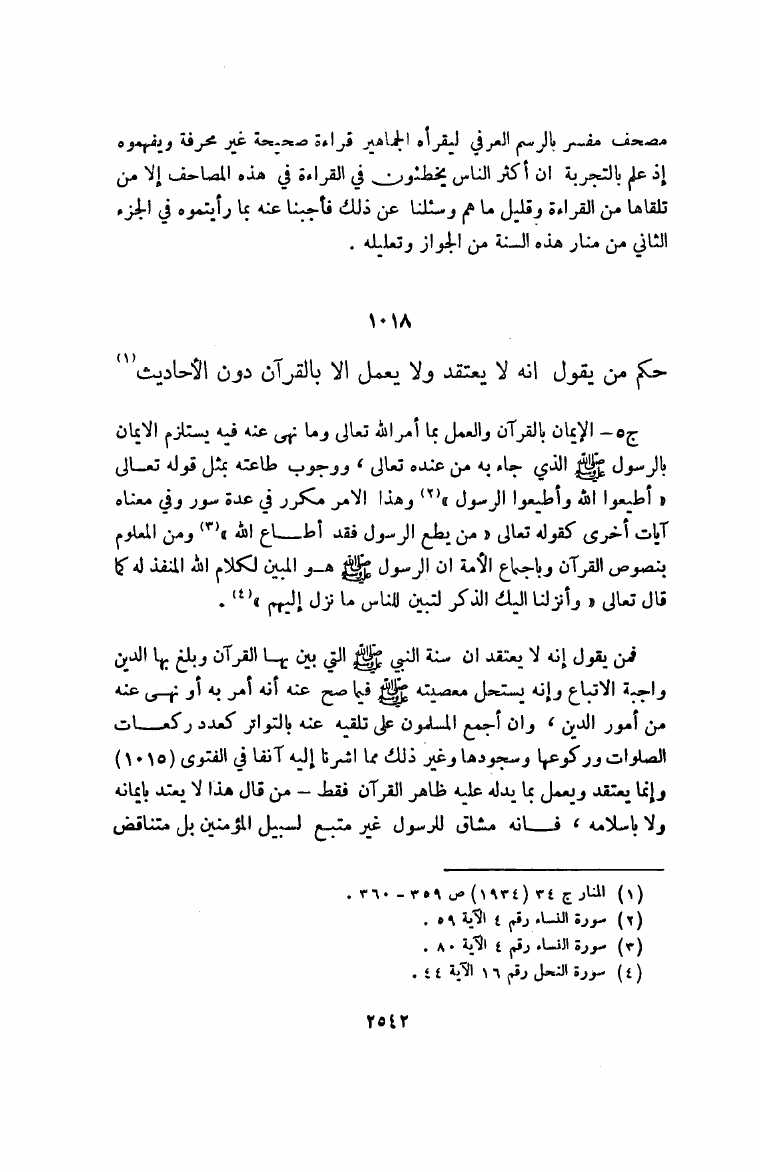 مصحف مفسر بالرسم العرفي ليقرأه الجماهير قراءة صحيحة غير محرفة ويفهموه
إذ علم بالتجربة ان أكثر الناس يخطئون في القراءة في هذه المصاحف إلا من
تلقاها من القراءة وقليل ما هم وسئلنا عن ذلك فأجبنا عنه بما رأيتموه في الجزء
الثاني من منار هذه السنة من الجواز وتعليله .
١٠١٨
حكم من يقول انه لا يعتقد ولا يعمل الا بالقرآن دون الأحاديث(١)
ج٥ – الإيمان بالقرآن والعمل بما أمر الله تعالى وما نهى عنه فيه يستلزم الايمان
بالرسول ﷺ الذي جاء به من عنده تعالى ، ووجوب طاعته بمثل قوله تعـالى
« أطيعوا الله وأطيعوا الرسول »(٢) وهذا الامر مكرر في عدة سور وفي معناه
آيات أخرى كقوله تعالى « من يطع الرسول فقد أطـــاع الله »(٣) ومن المعلوم
بنصوص القرآن وباجماع الأمة ان الرسول ﷺ هـو المبين لكلام الله المنفذ له كما
قال تعالى « وأنزلنا اليك الذكر لتبين للناس ما نزل إليهم »(٤) .
فمن يقول إنه لا يعتقد ان سنة النبي ﷺ التي بين بهـا القرآن وبلغ بها الدين
واجبة الاتباع وإنه يستحل معصيته ﷺ فيما صح عنه أنه أمر به أو نهـى عنه
من أمور الدين ، وان أجمع المسلمون على تلقيه عنه بالتواتر كعدد ركعـــات
الصلوات وركوعها وسجودها وغير ذلك مما اشرنا إليه آنفا في الفتوى (١٠١٥)
وإنما يعتقد ويعمل بما يدله عليه ظاهر القرآن فقط – من قال هذا لا يعتد بايمانه
ولا باسلامه ، فـــانه مشاق للرسول غير متبـع لسبيل المؤمنين بل متناقض
(١) المنار ج ٣٤ (١٩٣٤) ص ٣٥٩ – ٣٦٠ .
(٢) سورة النساء رقم ٤ الآية ٥٩ .
(٣) سورة النساء رقم ٤ الآية ٨٠ .
(٤) سورة النحل رقم ١٦ الآية ٤٤ .
٢٥٤٢